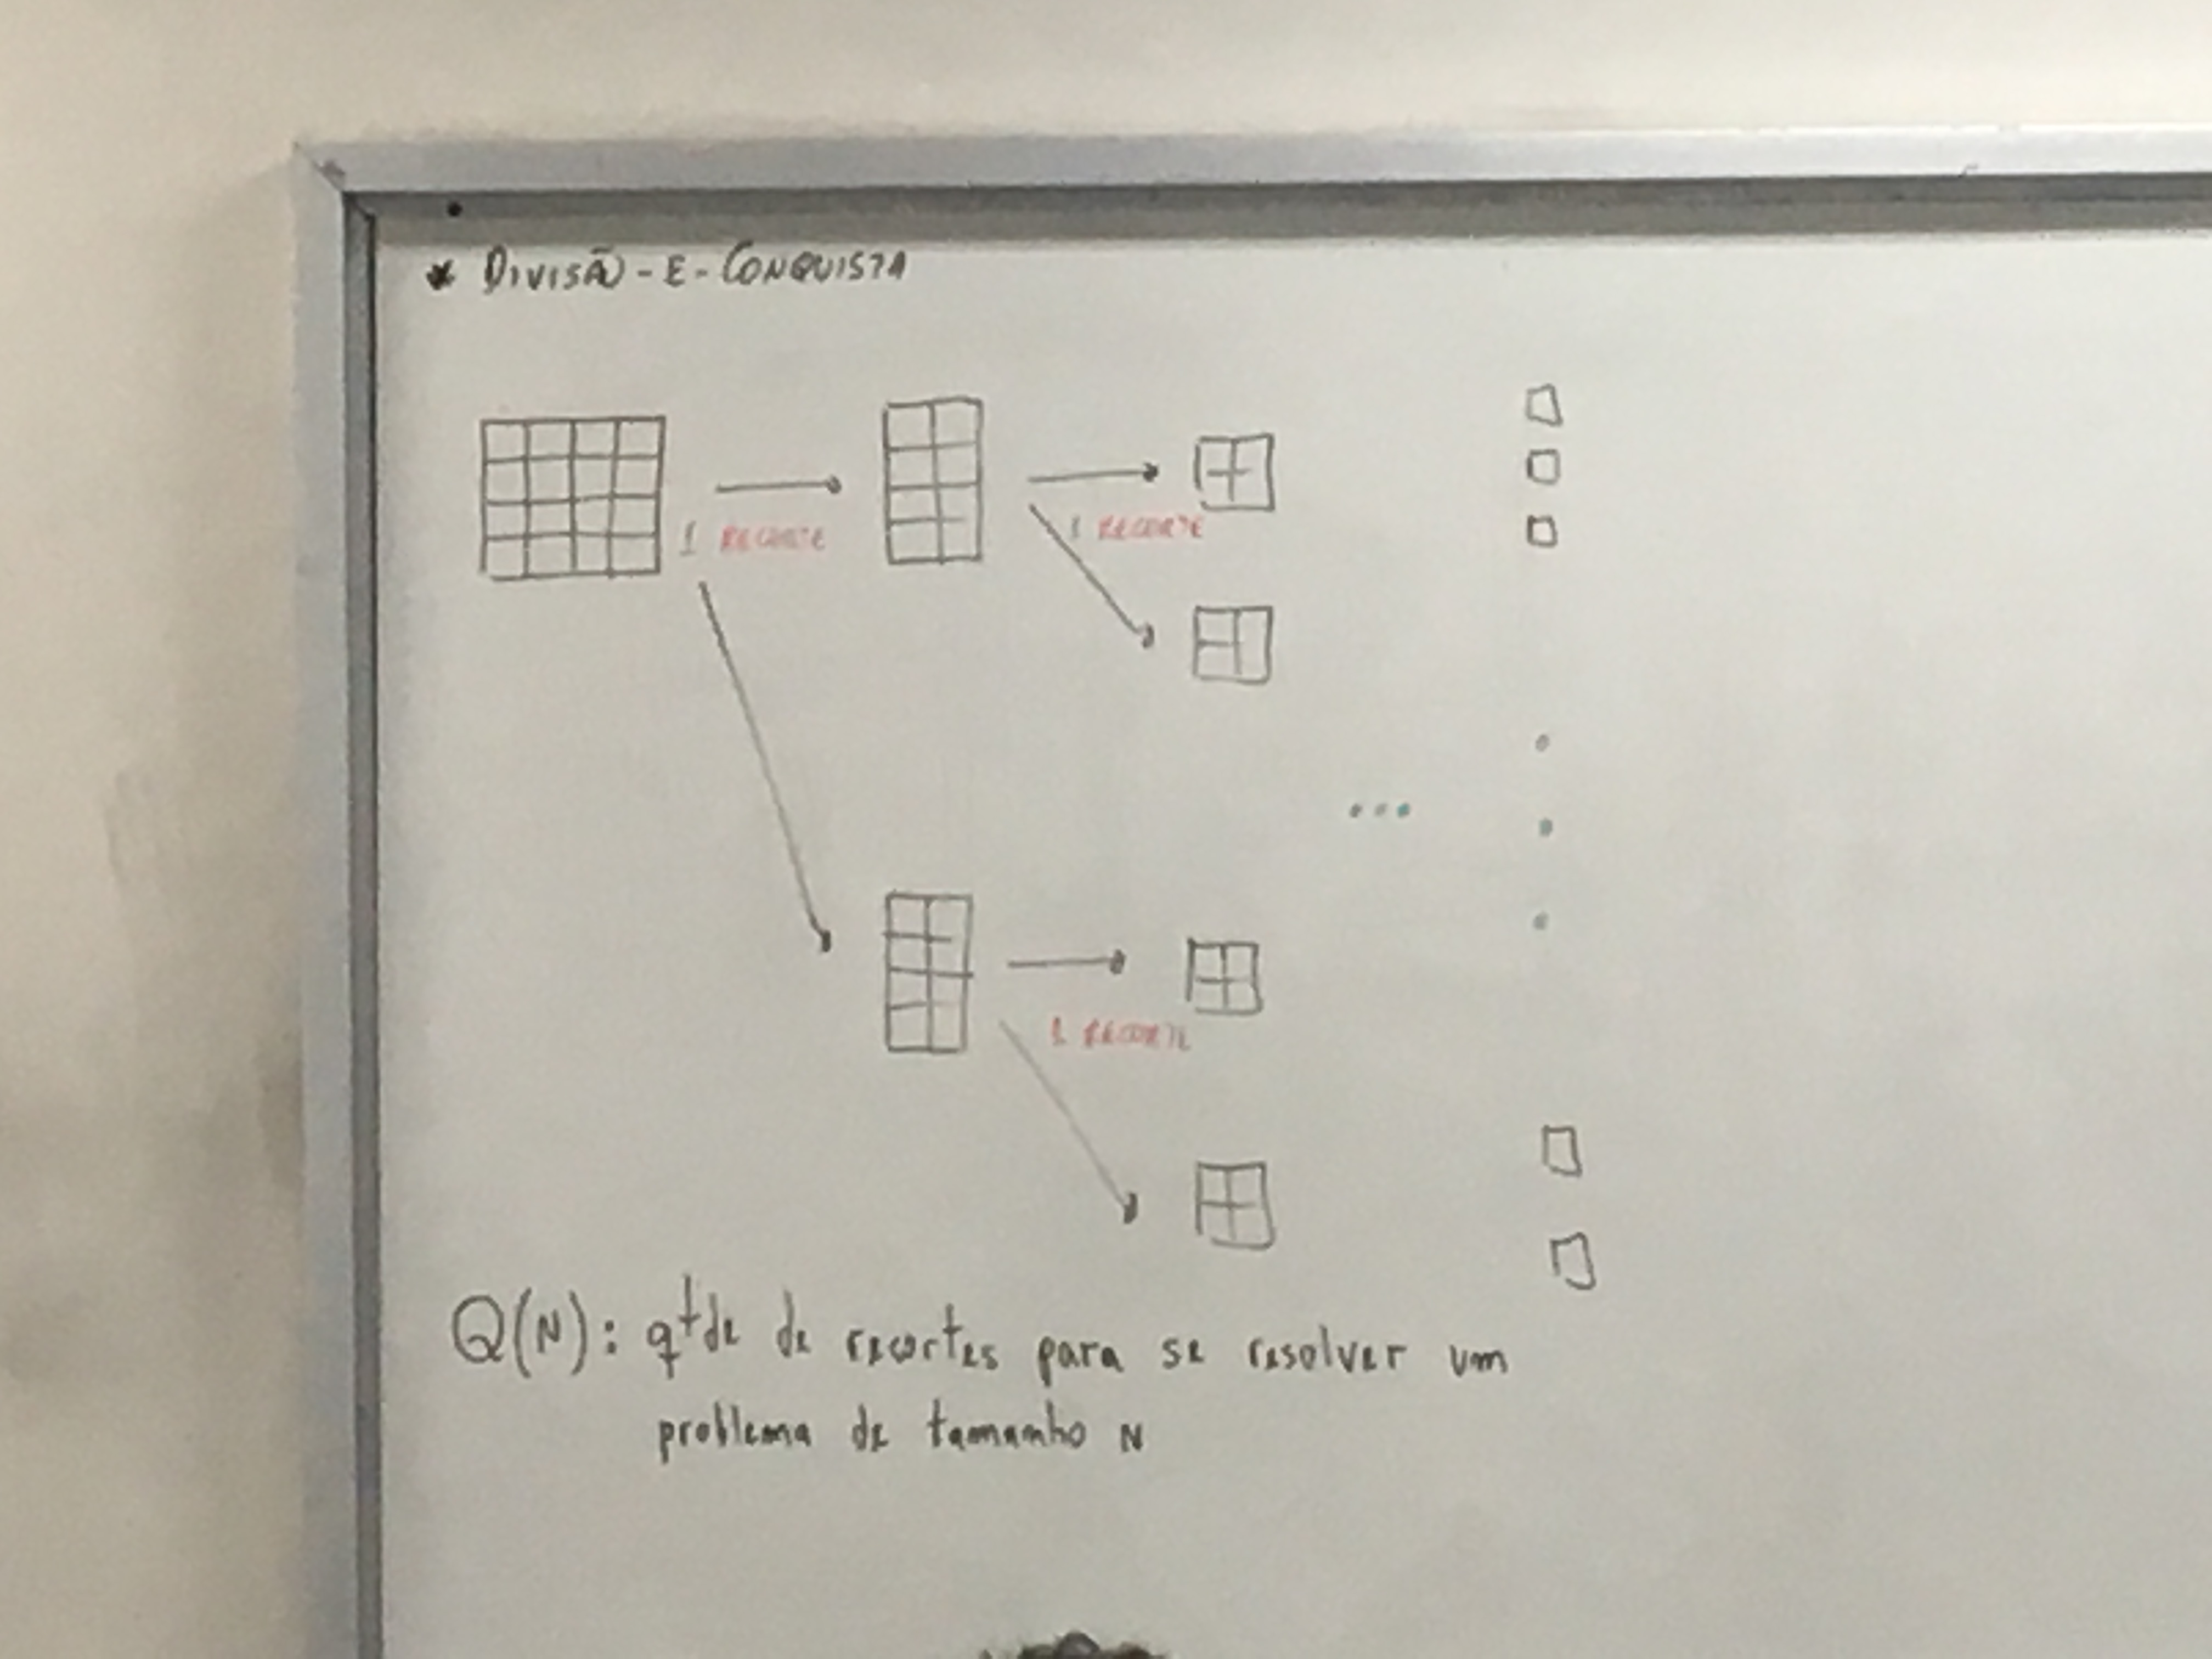 * DIVISÃO-E-CONQUISTA
1 RECORTE
1 RECORTE
1 RECORTE
...
Q(N): qtde de recortes para se resolver um
problema de tamanho N